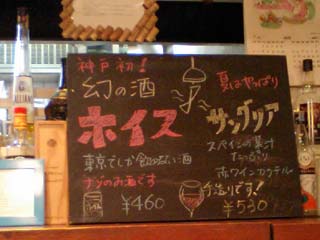 神戸初!
幻の酒
ホイス
東京でしか飲めない酒
ナゾのお酒です
¥460
夏はやっぱり
サングリア
スペインの果汁
たっぷり
赤ワインカクテル
手造りです!
¥530